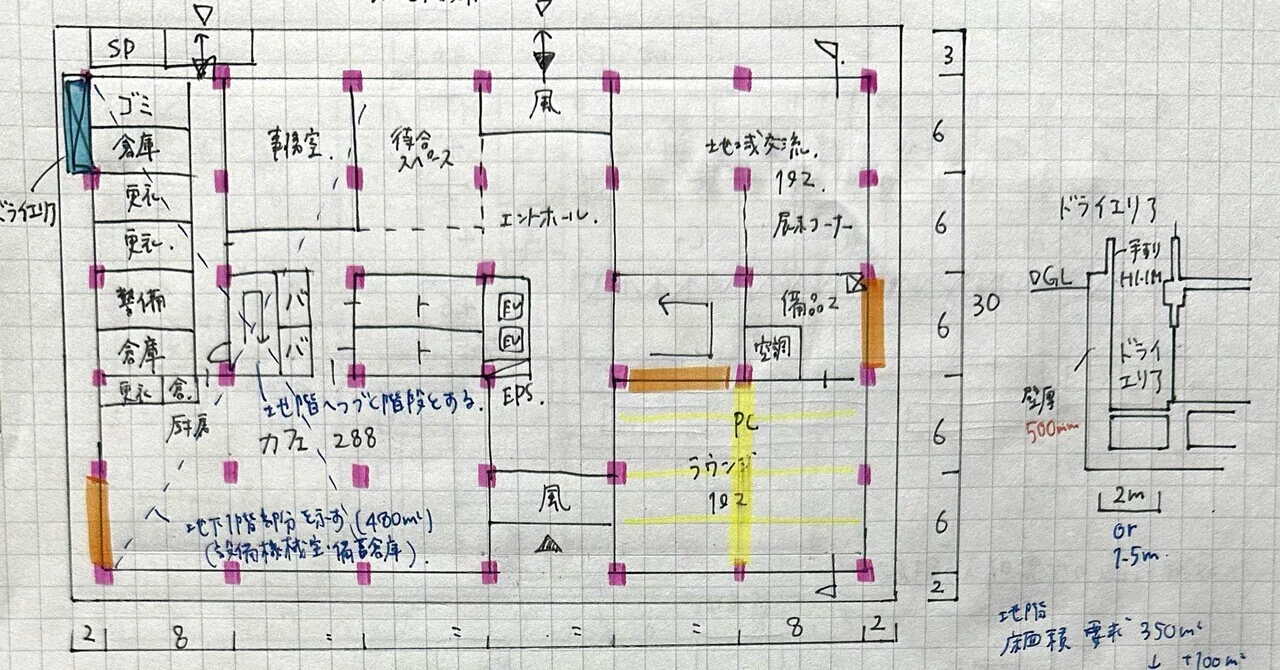 SP
ゴミ
倉庫
更衣
更衣
警備
倉庫
更衣 倉
厨房
ドライエリア
事務室
待合
スペース
風
エントホール
地域交流
192
展示コーナー
バ
バ
ト
ト
EV
EV
EPS
備品2
空調
地階へつづく階段とする
カフェ 288
地下1階部分を示す (480㎡)
(設備機械室・備蓄倉庫)
風
PC
ラウンジ
192
3
6
6
6
6
6
2
30
2 8 = = = = 8 2
ドライエリア
手すり
H1.1M
DGL
ドライ
エリア
壁厚
500mm
2m
or
1.5m
地階
床面積 要求 350㎡
↓ +100㎡